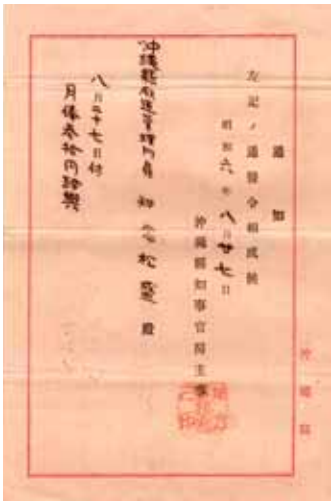 通知
左記ノ通發令相成候
昭和六年八月廿七日
沖繩縣知事官房主事
沖繩縣 知念松盛 殿
八月二十七日付
月俸参拾円給與
沖繩縣